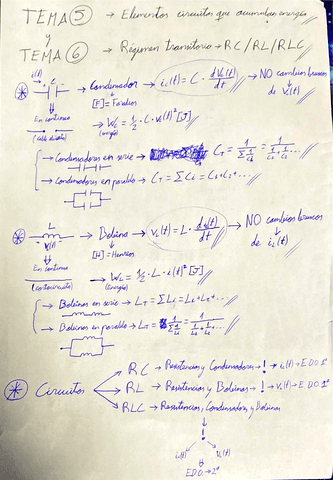 TEMA 5 → Elementos circuitos que acumulan energía
y
TEMA 6 → Régimen transitorio → RC / RL / RLC
i(t) C → Condensador → ic(t) = C · dVc(t)/dt → NO cambios bruscos de Vc(t)
[F] = Faradios
En continua
(cable abierto)
→ Wc = 1/2 · C · Vc(t)² [J]
(energía)
→ Condensadores en serie → CT = 1/(Σ 1/Ci) = 1/(1/C1 + 1/C2 ...)
→ Condensadores en paralelo → CT = ΣCi = C1 + C2 + ...
L → Bobina → VL(t) = L · diL(t)/dt → NO cambios bruscos de iL(t)
VL(t)
[H] = Henrios
En continua
(cortocircuito)
→ WL = 1/2 · L · i(t)² [J]
(Energía)
→ Bobinas en serie → LT = ΣLi = L1 + L2 + ...
→ Bobinas en paralelo → LT = 1/(Σ 1/Li) = 1/(1/L1 + 1/L2 + ...)
Circuitos
RC → Resistencias y Condensadores → ! → ic(t) → E.D.O. 1ª
RL → Resistencias y Bobinas → ! → VL(t) → E.D.O. 1ª
RLC → Resistencias, Condensadores y Bobinas
!
ic(t) VL(t)
E.D.O. → 2ª